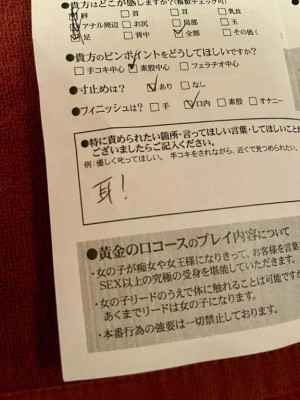 ●貴方はどこが感じますか?(複数チェック可)
□首 □耳 □乳首
□アナル周辺 □お尻 □局部 □玉
足 □背中 ☑全部 □その他(
●貴方のピンポイントをどうしてほしいですか?
□手コキ中心 ☑素股中心 □フェラチオ中心
●寸止めは? ☑あり □なし
●フィニッシュは? □手 ☑口内 □素股 □オナニー
●特に責められたい箇所・言ってほしい言葉・してほしいこと
ございましたらご記入ください。
例:優しく叱ってほしい。 手コキをされながら、近くで見つめられたい。
耳!
●黄金の口コースのプレイ内容について
・女の子が痴女や女王様になりきって、お客様を言葉
SEX以上の究極の受身を堪能していただきます。
・女の子リードのうえで体に触れることは可能ですが
あくまでリードは女の子になります。
・本番行為の強要は一切禁止しております。